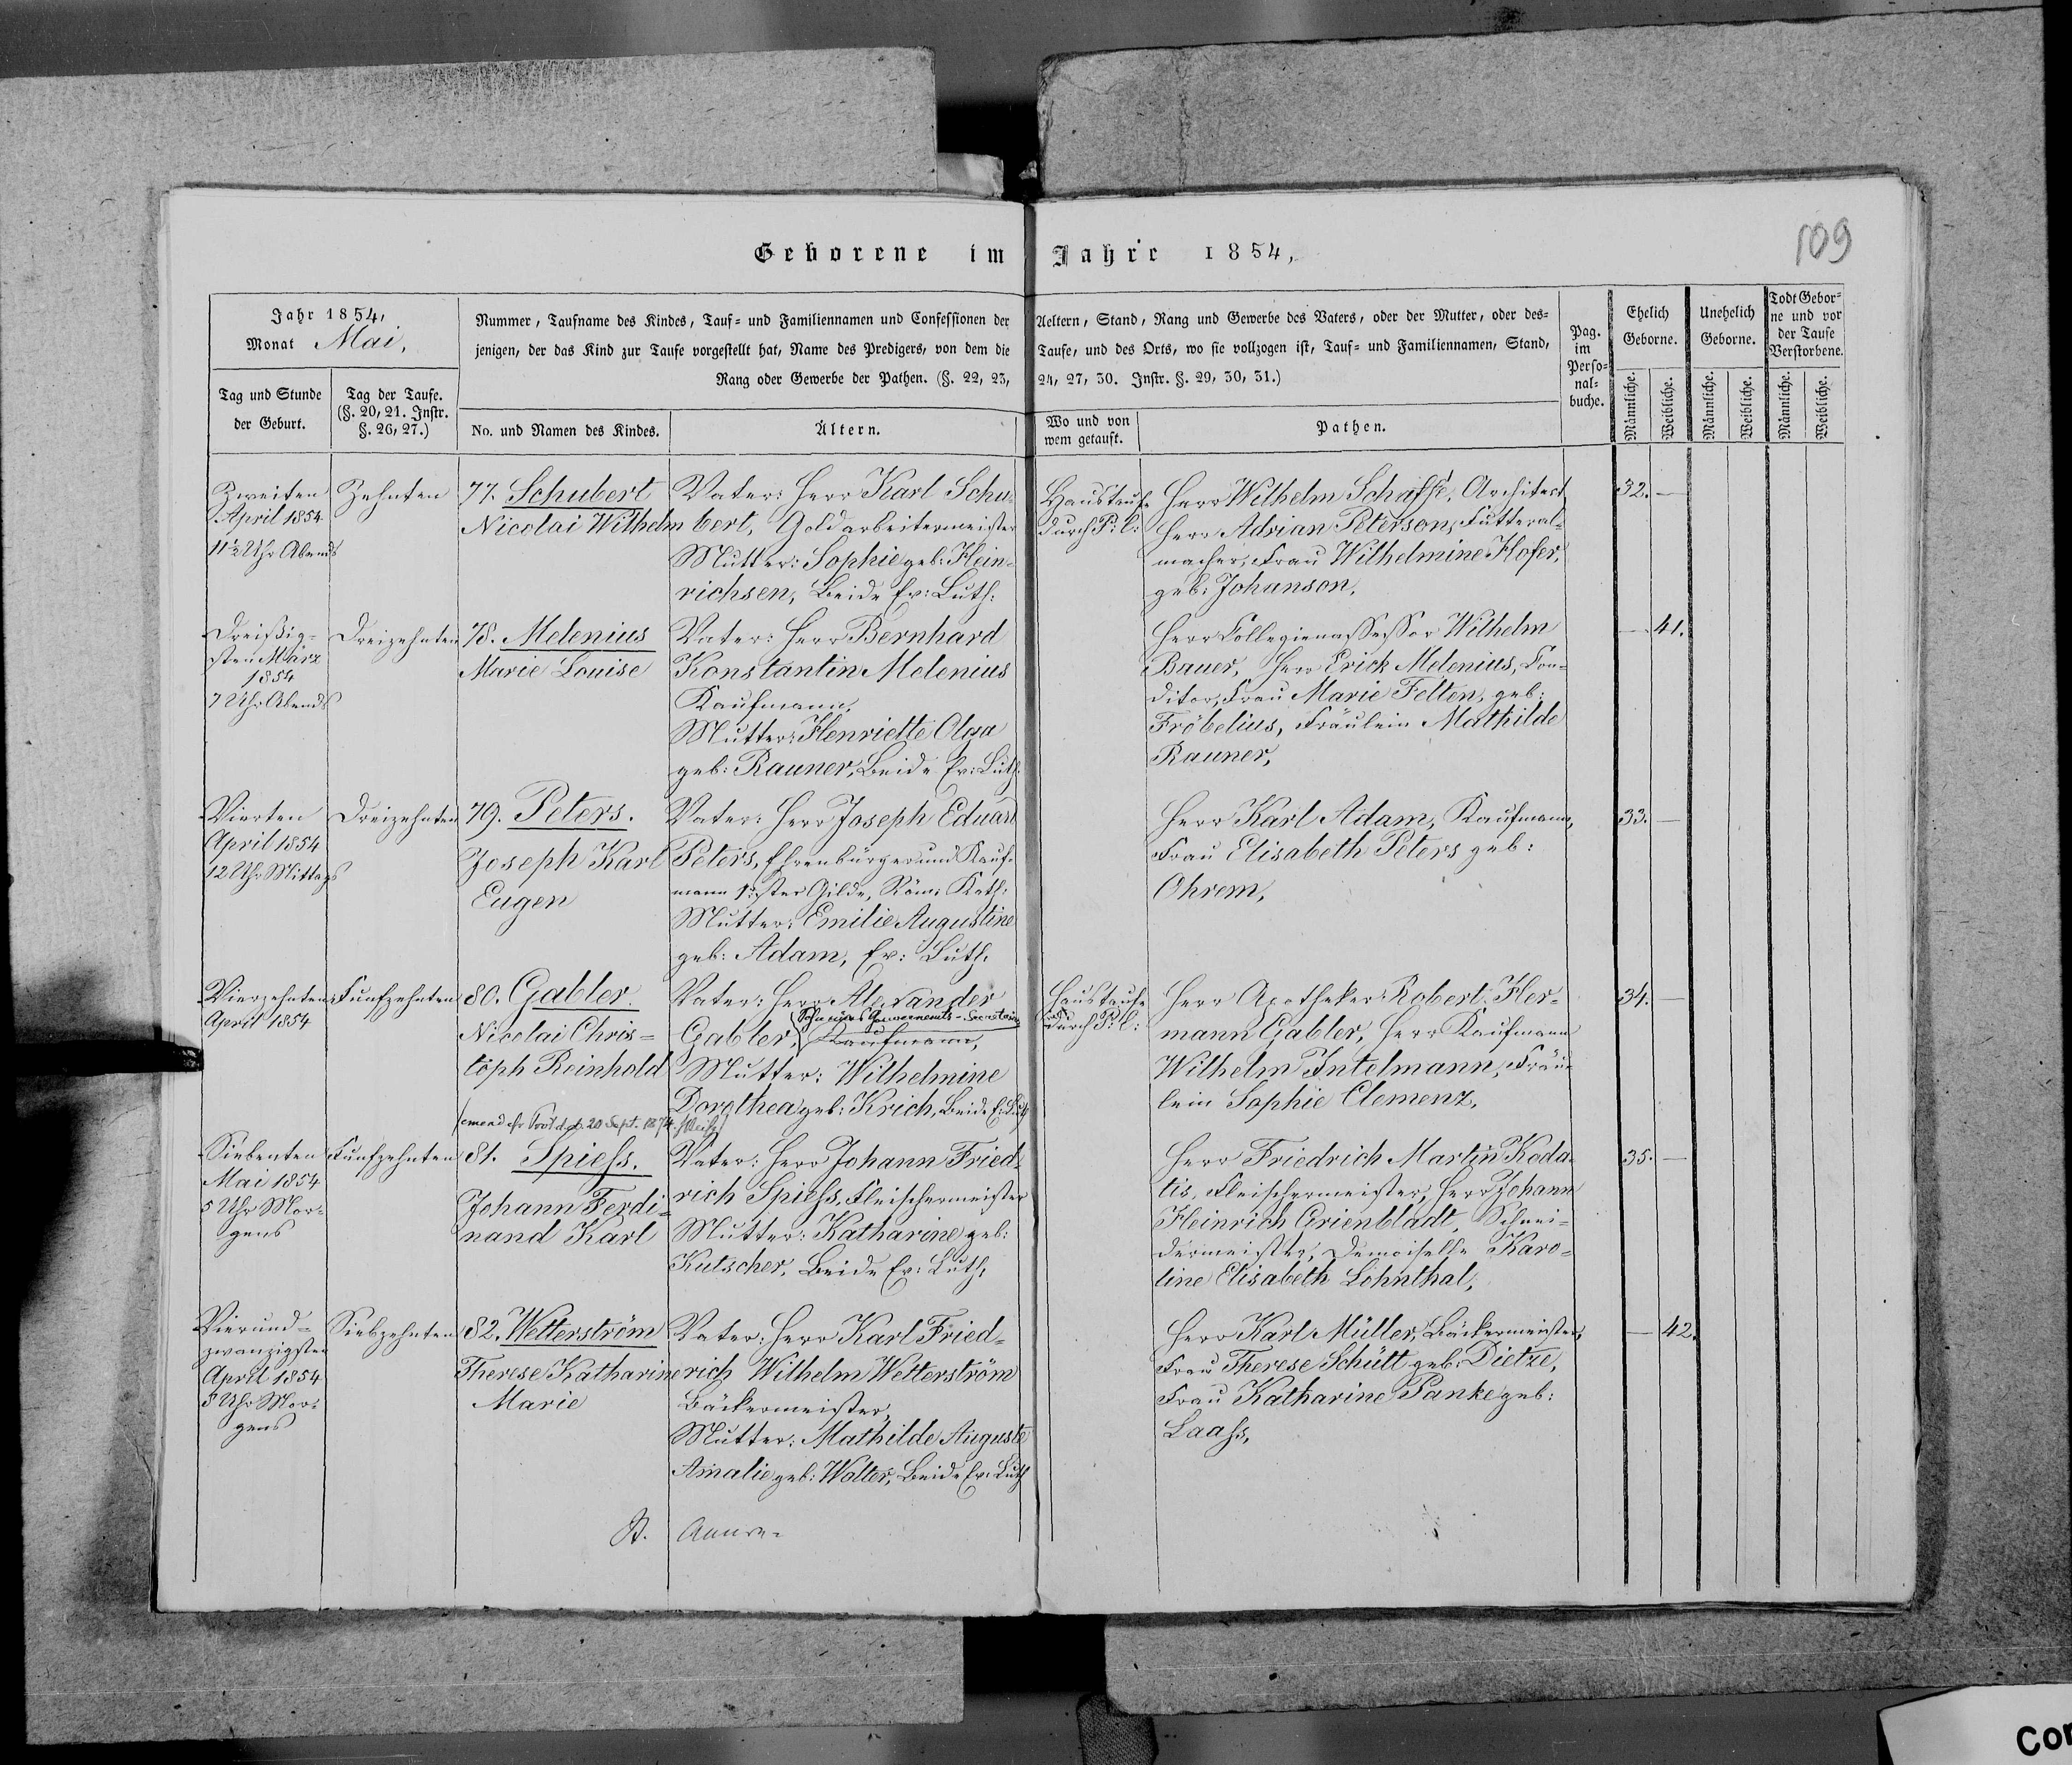 109
Geborene im Jahre 1854,
Jahr 1854,
Monat Mai,
Tag und Stunde
der Geburt.
Tag der Taufe.
(§. 20, 21. Instr.
§. 26, 27.)
Nummer, Taufname des Kindes, Tauf- und Familiennamen und Confessionen der Aeltern, Stand, Rang und Gewerbe des Vaters, oder der Mutter, oder des-
jenigen, der das Kind zur Taufe vorgestellt hat, Name des Predigers, von dem die Taufe, und des Orts, wo sie vollzogen ist, Tauf- und Familiennamen, Stand,
Rang oder Gewerbe der Pathen. (§. 22, 23, 24, 27, 30. Instr. §. 29, 30, 31.)
No. und Namen des Kindes.
Ältern.
Wo und von
wem getauft.
Pathen.
Pag.
im
Perso-
nal-
buche.
Ehelich
Geborne.
Unehelich
Geborne.
Todt Gebor-
ne und vor
der Taufe
Verstorbene.
Männliche.
Weibliche.
Männliche.
Weibliche.
Männliche.
Weibliche.
Zweiten
April 1854
11½ Uhr Abends
Zehnten
77. Schubert
Nicolai Wilhelm
Vater: Herr Karl Schu-
bert, Goldarbeitermeister
Mutter: Sophie geb: Hein-
richsen, Beide Ev: Luth:
Haustaufe
durch P: l:
Herr Wilhelm Schaffé, Architect
Herr Adrian Peterson, Futteral-
macher, Frau Wilhelmine Hofer,
geb: Johanson,
32. —
Dreißig-
sten März
1854
7 Uhr Abends
Dreizehnten
78. Melenius
Marie Louise
Vater: Herr Bernhard
Konstantin Melenius
Kaufmann,
Mutter: Henriette Olga
geb: Rauner, Beide Ev: Luth:
Herr Collegienassessor Wilhelm
Bauer, Herr Erick Melenius, Con-
ditor, Frau Marie Felten, geb:
Fröbelius, Fräulein Mathilde
Rauner,
— 41.
Vierten
April 1854
12 Uhr Mittags
Dreizehnten
79. Peters.
Joseph Karl
Eugen
Vater: Herr Joseph Eduard
Peters, Ehrenbürger und Kauf-
mann 1ster Gilde, Röm: Kath:
Mutter: Emilie Augustine
geb: Adam, Ev: Luth:
Herr Karl Adam, Kaufmann,
Frau Elisabeth Peters geb:
Ohrem,
33. —
Vierzehnten
April 1854
Funfzehnten
80. Gabler.
Nicolai Chris-
toph Reinhold
Vater: Herr Alexander
Gouvernements-Secretair
Gabler, Kaufmann,
Mutter: Wilhelmine
Dorothea geb: Krich, Beide Ev: Luth
20 Sept. 1874.
Haustaufe
durch P: l:
Herr Apotheker Robert Her-
mann Gabler, Herr Kaufmann
Wilhelm Intelmann, Fräu-
lein Sophie Clemenz,
34. —
Siebenten
Mai 1854
5 Uhr Mor-
gens
Funfzehnten
81. Spiess.
Johann Ferdi-
nand Karl
Vater: Herr Johann Fried-
rich Spiess, Fleischermeister
Mutter: Katharine geb:
Kutscher, Beide Ev: Luth:
Herr Friedrich Martin Koda-
tis, Fleischermeister, Herr Johann
Heinrich Grienbladt, Schnei-
dermeister, Demoiselle Karo-
line Elisabeth Löhnthal,
35. —
Vierund-
zwanzigsten
April 1854
8 Uhr Mor-
gens
Siebzehnten
82. Wetterström
Therese Katharine
Marie
Vater: Herr Karl Fried-
rich Wilhelm Wetterström
Bäckermeister,
Mutter: Mathilde Auguste
Amalie geb: Wolter, Beide Ev: Luth
Herr Karl Müller, Bäckermeister,
Frau Therese Schütt geb: Dietze,
Frau Katharine Panke geb:
Laass,
— 42.